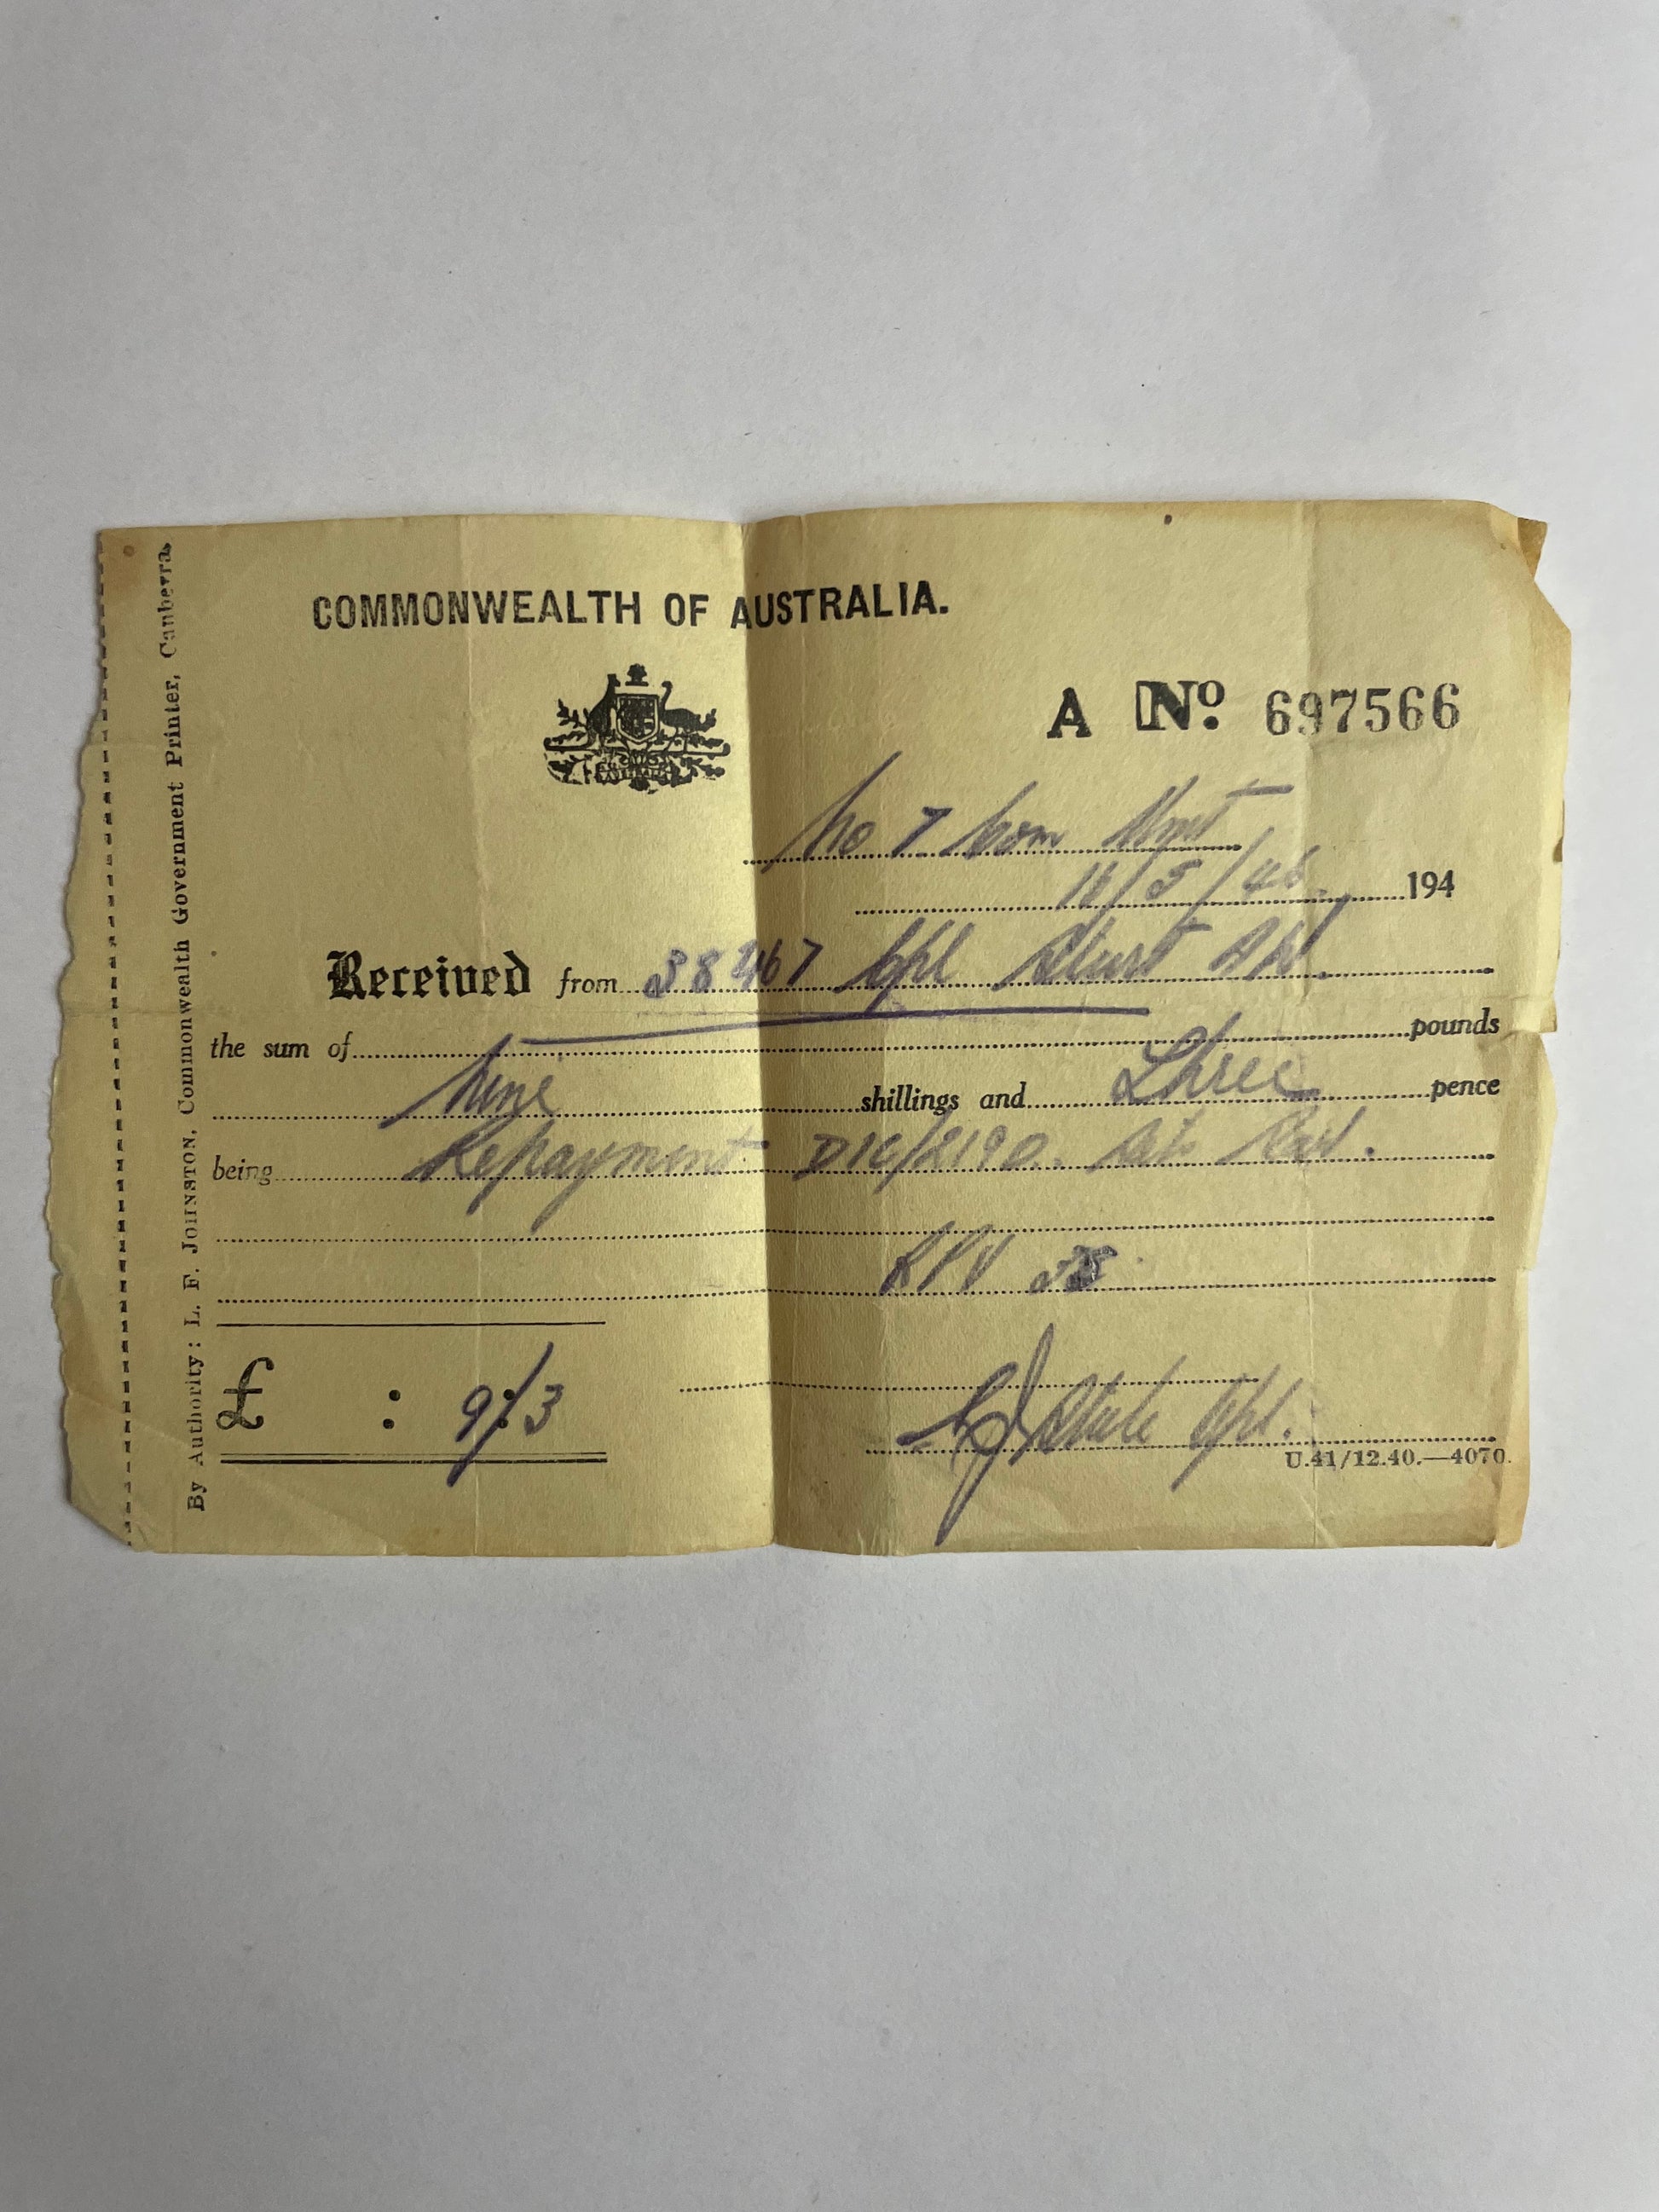 COMMONWEALTH OF AUSTRALIA.
A No. 697566
No 7 Com Unit
11/5/46 194
Received from 38467 Cpl Sturt A W.
the sum of pounds
Nine shillings and Three pence
being Repayment D16/2190.
RPV 38
£ : 9/3
Cpl.
U.41/12.40.—4070.
By Authority: L. F. JOHNSTON, Commonwealth Government Printer, Canberra.